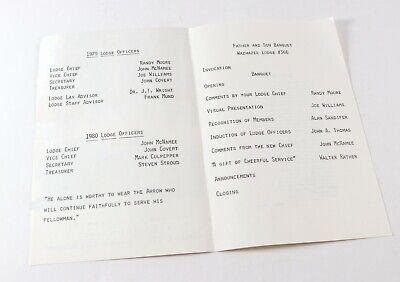 1979 Lodge Officers
Lodge Chief Randy Moore
Vice Chief John McNamee
Secretary Joe Williams
Treasurer John Covert
Lodge Lay Advisor Dr. J.T. Wright
Lodge Staff Advisor Frank Mund
1980 Lodge Officers
Lodge Chief John McNamee
Vice Chief John Covert
Secretary Mark Culpepper
Treasurer Steven Stroud
"He alone is worthy to wear the Arrow who
will continue faithfully to serve his
fellowman."
Father and Son Banquet
Wachazee Lodge #366
Invocation
Banquet
Opening
Comments by your Lodge Chief Randy Moore
Visual Presentation Joe Williams
Recognition of Members Alan Sandifer
Induction of Lodge Officers John A. Thomas
Comments from the new Chief John McNamee
"A gift of Cheerful Service" Walter Rather
Announcements
Closing